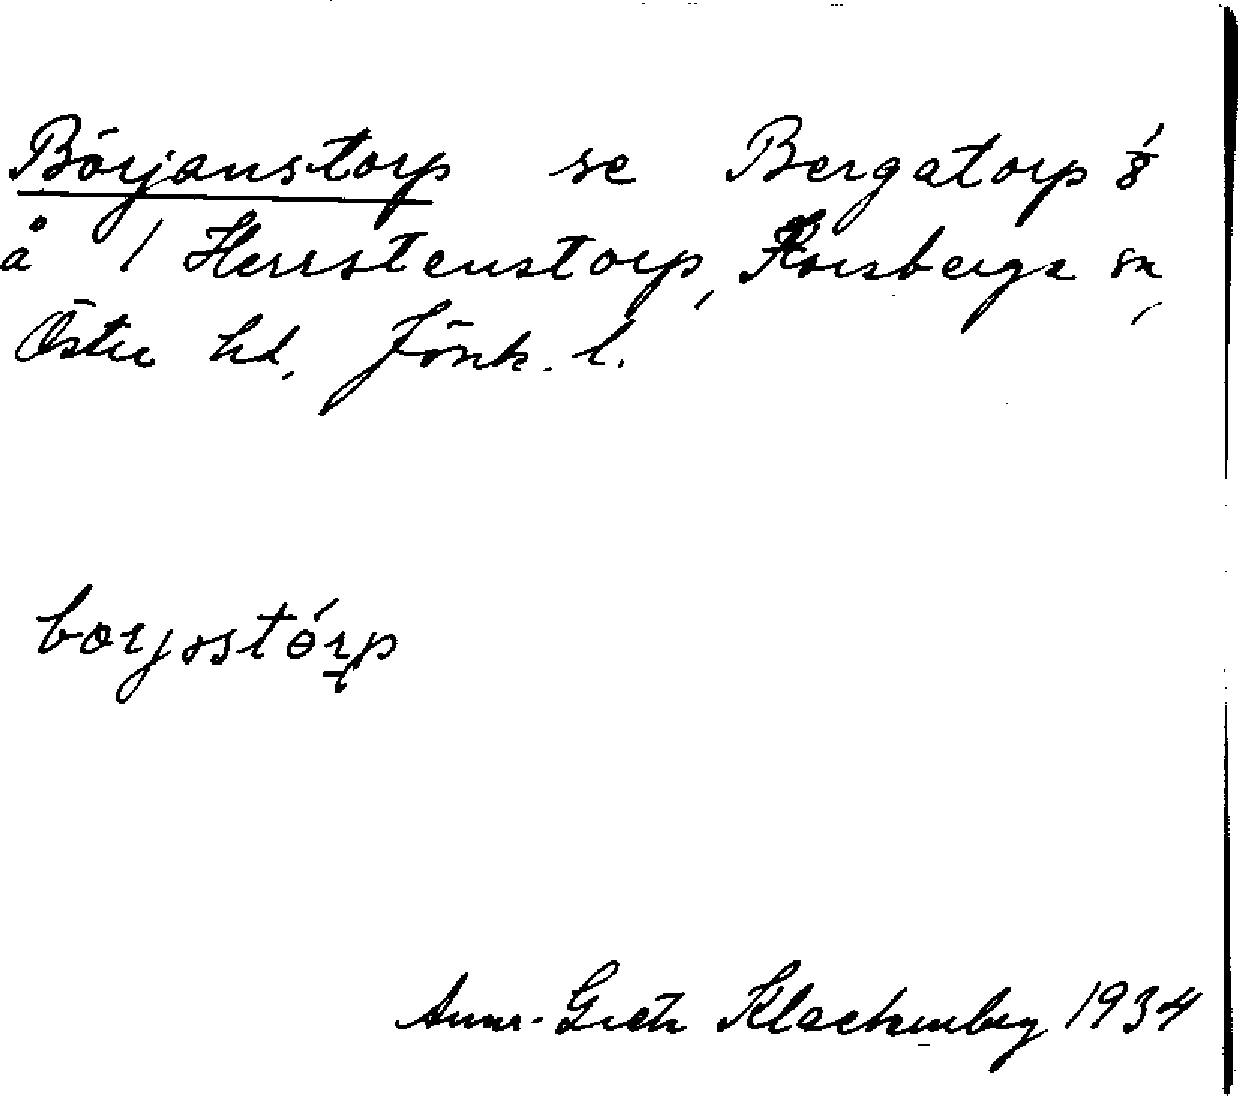 Börjanstorp se Bergatorp 1/8
å 1 Herrstenstorp, Korsberga sn,
Östra hd, Jönk. l.
borjastórp
Anna-Greta Klackenberg 1934